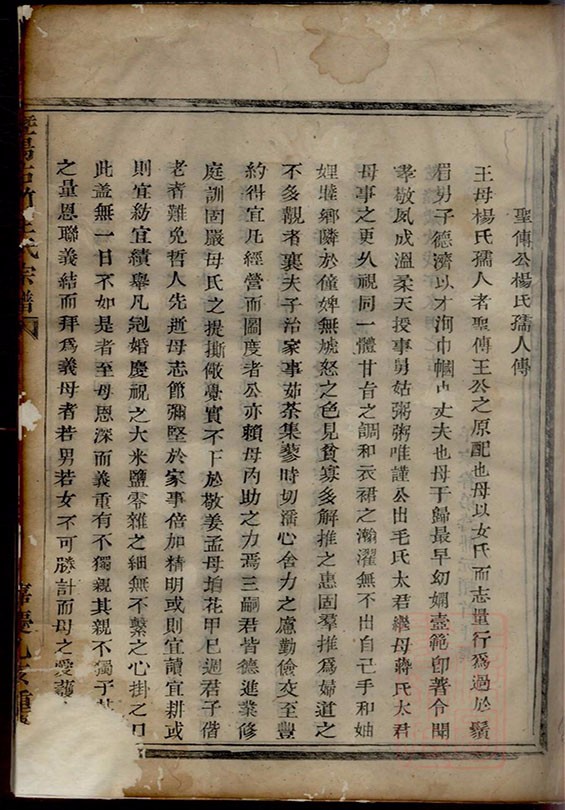 聖傳公楊氏孺人傳
王母楊氏孺人者聖傳王公之原配也母以女氏而志量行為過於鬚
眉男子德濟以才洵巾幗中丈夫也母于歸最早幼嫻壼範即著令聞
孝敬夙成溫柔天授事舅姑粥粥唯謹公出毛氏太君繼母蔣氏太君
母事之更久視同一體甘旨之調和衣裙之瀚濯無不出自己手和妯
娌睦鄉隣於僮婢無虓怒之色見貧寡多解推之惠固羣推為婦道之
不多覯者襄夫子治家事茹荼集蓼時切潘心舍力之慮勤儉交至豐
約得宜凡經營而圖度者公亦賴母內助之力焉三嗣君皆德進業修
庭訓固嚴母氏之提撕儆覺實不下於敬姜孟母逈花甲已週君子偕
老者難免哲人先逝母志節彌堅於家事倍加精明或則宜讀宜耕或
則宜紡宜績舉凡冠婚慶祝之大米鹽零雜之細無不繫之心掛之口
此蓋無一日不如是者至母恩深而義重有不獨親其親不獨子其
之量恩聯義結而拜為義母者若男若女不可勝計而母之愛
氏宗譜